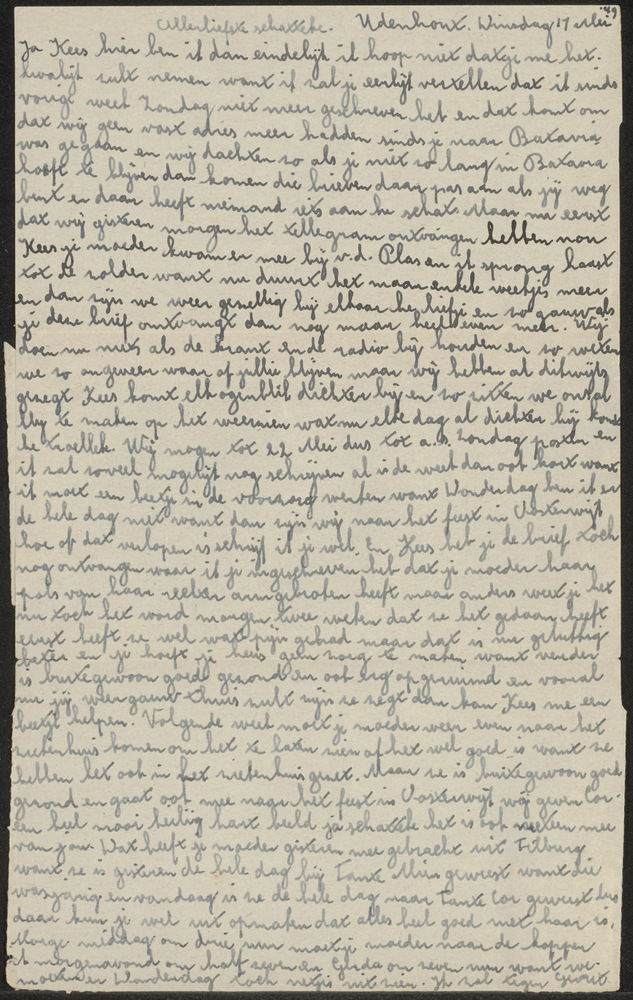 Allerliefste schatteke. Udenhout. Dinsdag 17 Mei '49
Ja Kees hier ben ik dan eindelijk ik hoop niet datge me het.
kwalijk zult nemen want ik zal je eerlijk vertellen dat ik sinds
vorige week Zondag niet meer geschreven heb en dat komt om
dat wij geen vast adres meer hadden sinds je naar Batavia
was gegaan en wij dachten zo als je niet zo lang in Batavia
hoeft te blijven dan komen die brieven daar pas aan als jij weg
bent en daar heeft niemand iets aan he schat. Maar nu eerst
dat wij gisteren morgen het tellegram ontvangen hebben nou
Kees je moeder kwam er mee bij v.d. Plas en ik sprong haast
tot de zolder want nu duurt het maar enkele weekjes meer
en dan zijn we weer gezellig bij elkaar he liefje en zo gauw als
je deze brief ontvangt dan nog maar heel even meer. Wij
doen nu niets als de krant en de radio bij houden en zo weten
we zo ongeveer waar of jullie blijven maar wij hebben al dikwijls
gezegt Kees komt elk ogenblik dichter bij en zo zitten we ons al
blij te maken op het weerzien wat nu elke dag al dichter bij komt
he troellek. Wij mogen tot 22 Mei dus tot a.s. Zondag posten en
ik zal zoveel mogelijk nog schrijven al is de week dan ook kort want
ik moet een beetje in de voorzorg werken want Donderdag ben ik er
de hele dag niet want dan zijn wij naar het feest in Oosterwijk
hoe of dat verlopen is schrijf ik je wel. En Kees heb je de brief toch
nog ontvangen waar ik je ingeschreven heb dat je moeder haar
pols van haar rechter arm gebroken heeft maar anders weet je het
nu toch het word morgen twee weken dat ze het gedaan heeft
eerst heeft ze wel wat pijn gehad maar dat is nu gelukkig
beter en je hoeft je heus geen zorg te maken want verder
is buitegewoon goed gezond en ook erg opgeruimd en vooral
nu jij weer gauw thuis zult zijn ze zegt dan kan Kees me een
beetje helpen. Volgende week moet je moeder weer even naar het
ziekenhuis komen om het te laten zien of het wel goed is want ze
hebben het ook in het ziekenhuis gezet. Maar ze is buitegewoon goed
gezond en gaat ook mee naar het feest in Oosterwijk wij geven Cor-
een heel mooi heilig hart beeld ja schatteke het is ook meteen mee
van jou. Dat heeft je moeder gisteren mee gebracht uit Tilburg
want ze is gisteren de hele dag bij Tante Mina geweest want die
was jarig en vandaag is ze de hele dag naar Tante Cor geweest dus
daar kun je wel uit opmaken dat alles heel goed met haar is.
Morge middag om drie uur moet je moeder naar de kapper
ik morgenavond om half zeven en Gerda om zeven uur want we
moeten er Donderdag toch netjes uit zien. Ik zal tegen Gerrit